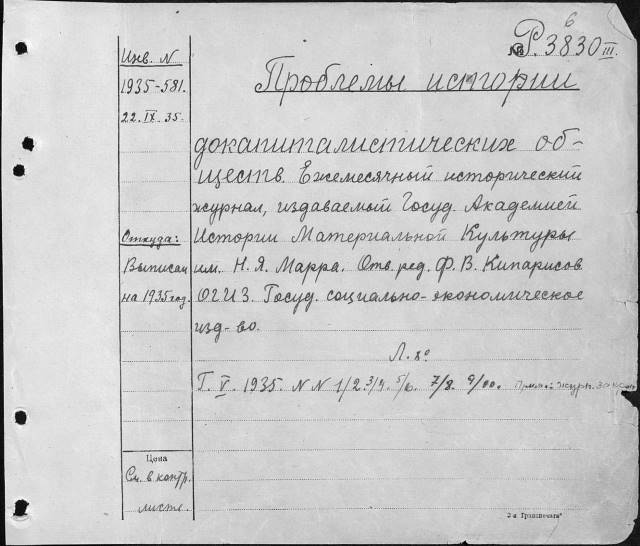 6
№ Р. 3830 III.
Инв. N
1935-581.
22. IX. 35.
Проблемы истории
докапиталистических об-
ществ. Ежемесячный исторический
журнал, издаваемый Госуд. Академией
Откуда:
Истории Материальной Культуры
Выписан
им. Н. Я. Марра. Отв. ред. Ф. В. Кипарисов
на 1935 год.
ОГИЗ. Госуд. социально-экономическое
изд-во.
Л. 8°
Т. V. 1935. N N 1/2. 3/4. 5/6. 7/8. 9/10.
Цена
См. в контр.
листе.